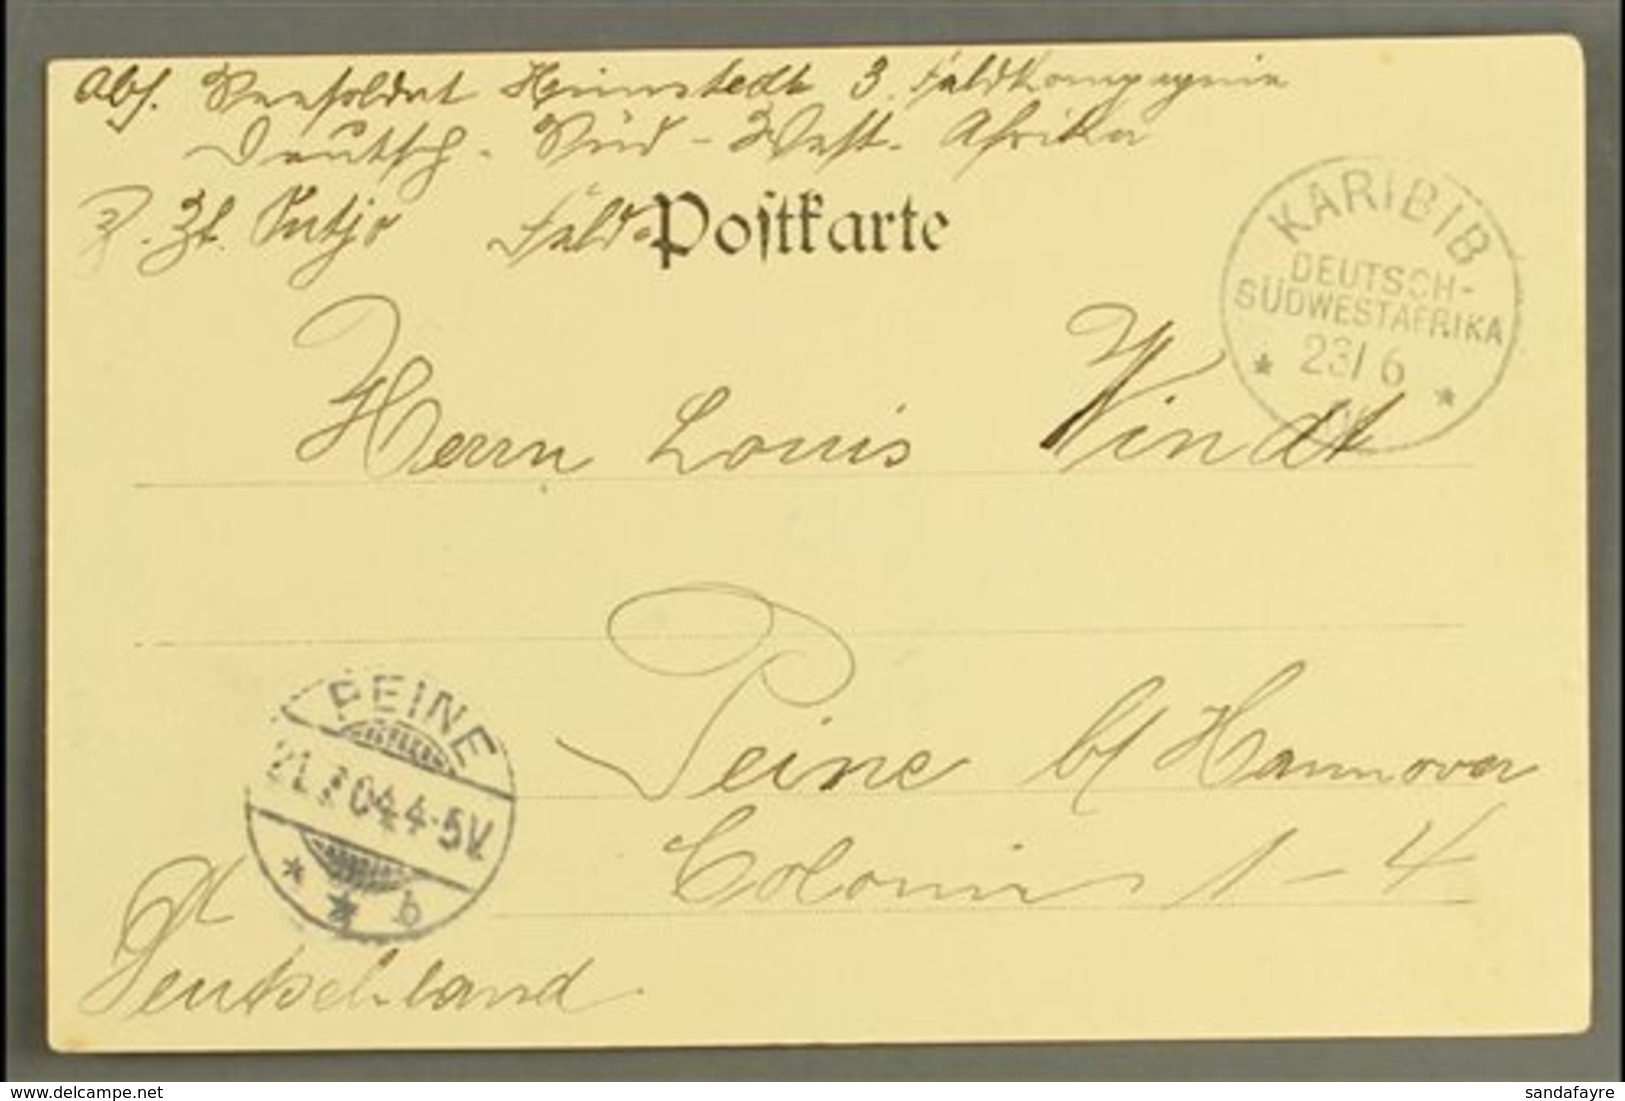 Abs. Seesoldat Heimstedt 3. Feldkompagnie
Deutsch-Süd-West-Afrika
z. Zt. Outjo Feld-Postkarte
KARIBIB
DEUTSCH-
SÜDWESTAFRIKA
23/6
Herrn Louis Windt
PEINE
21.7.04.4-5V.
* * b
Peine b/ Hannover
Colonie 1-4
Deutschland.
delcampe.net
sandafayre